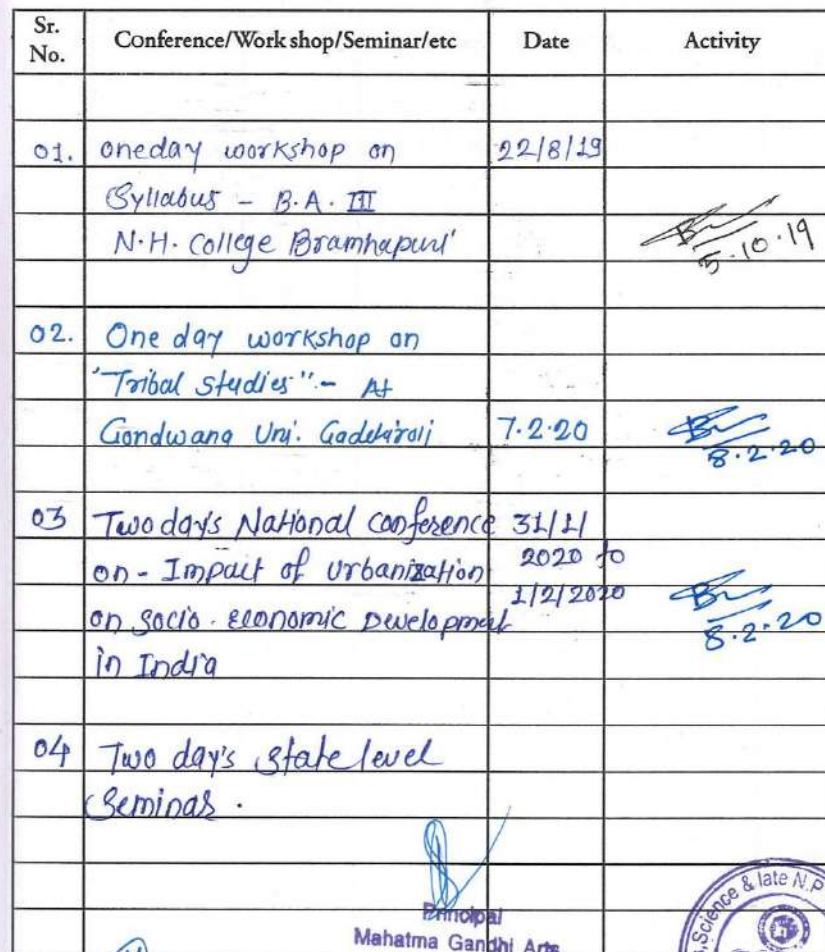 Sr. No. Conference/Work shop/Seminar/etc Date Activity
01. oneday workshop on 22/8/19
Syllabus - B.A. III
N.H. College Bramhapuri'
5.10.19
02. One day workshop on
"Tribal Studies" - At
Gondwana Uni. Gadchiroli 7.2.20
8.2.20
03 Two day's National conference 31/1/
on - Impact of Urbanization 2020 to
on socio. economic Development 1/2/2020
8.2.20
in India
04 Two day's state level
Seminar.
Principal
Mahatma Gandhi Arts
Science & late N.P